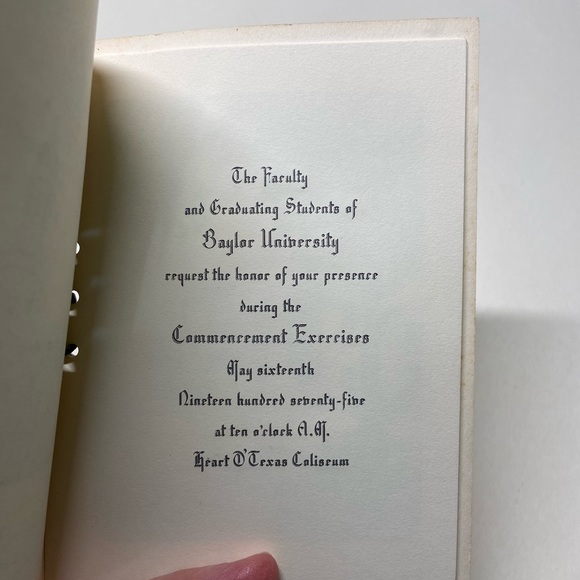 The Faculty
and Graduating Students of
Baylor University
request the honor of your presence
during the
Commencement Exercises
May sixteenth
Nineteen hundred seventy-five
at ten o'clock A.M.
Heart O'Texas Coliseum